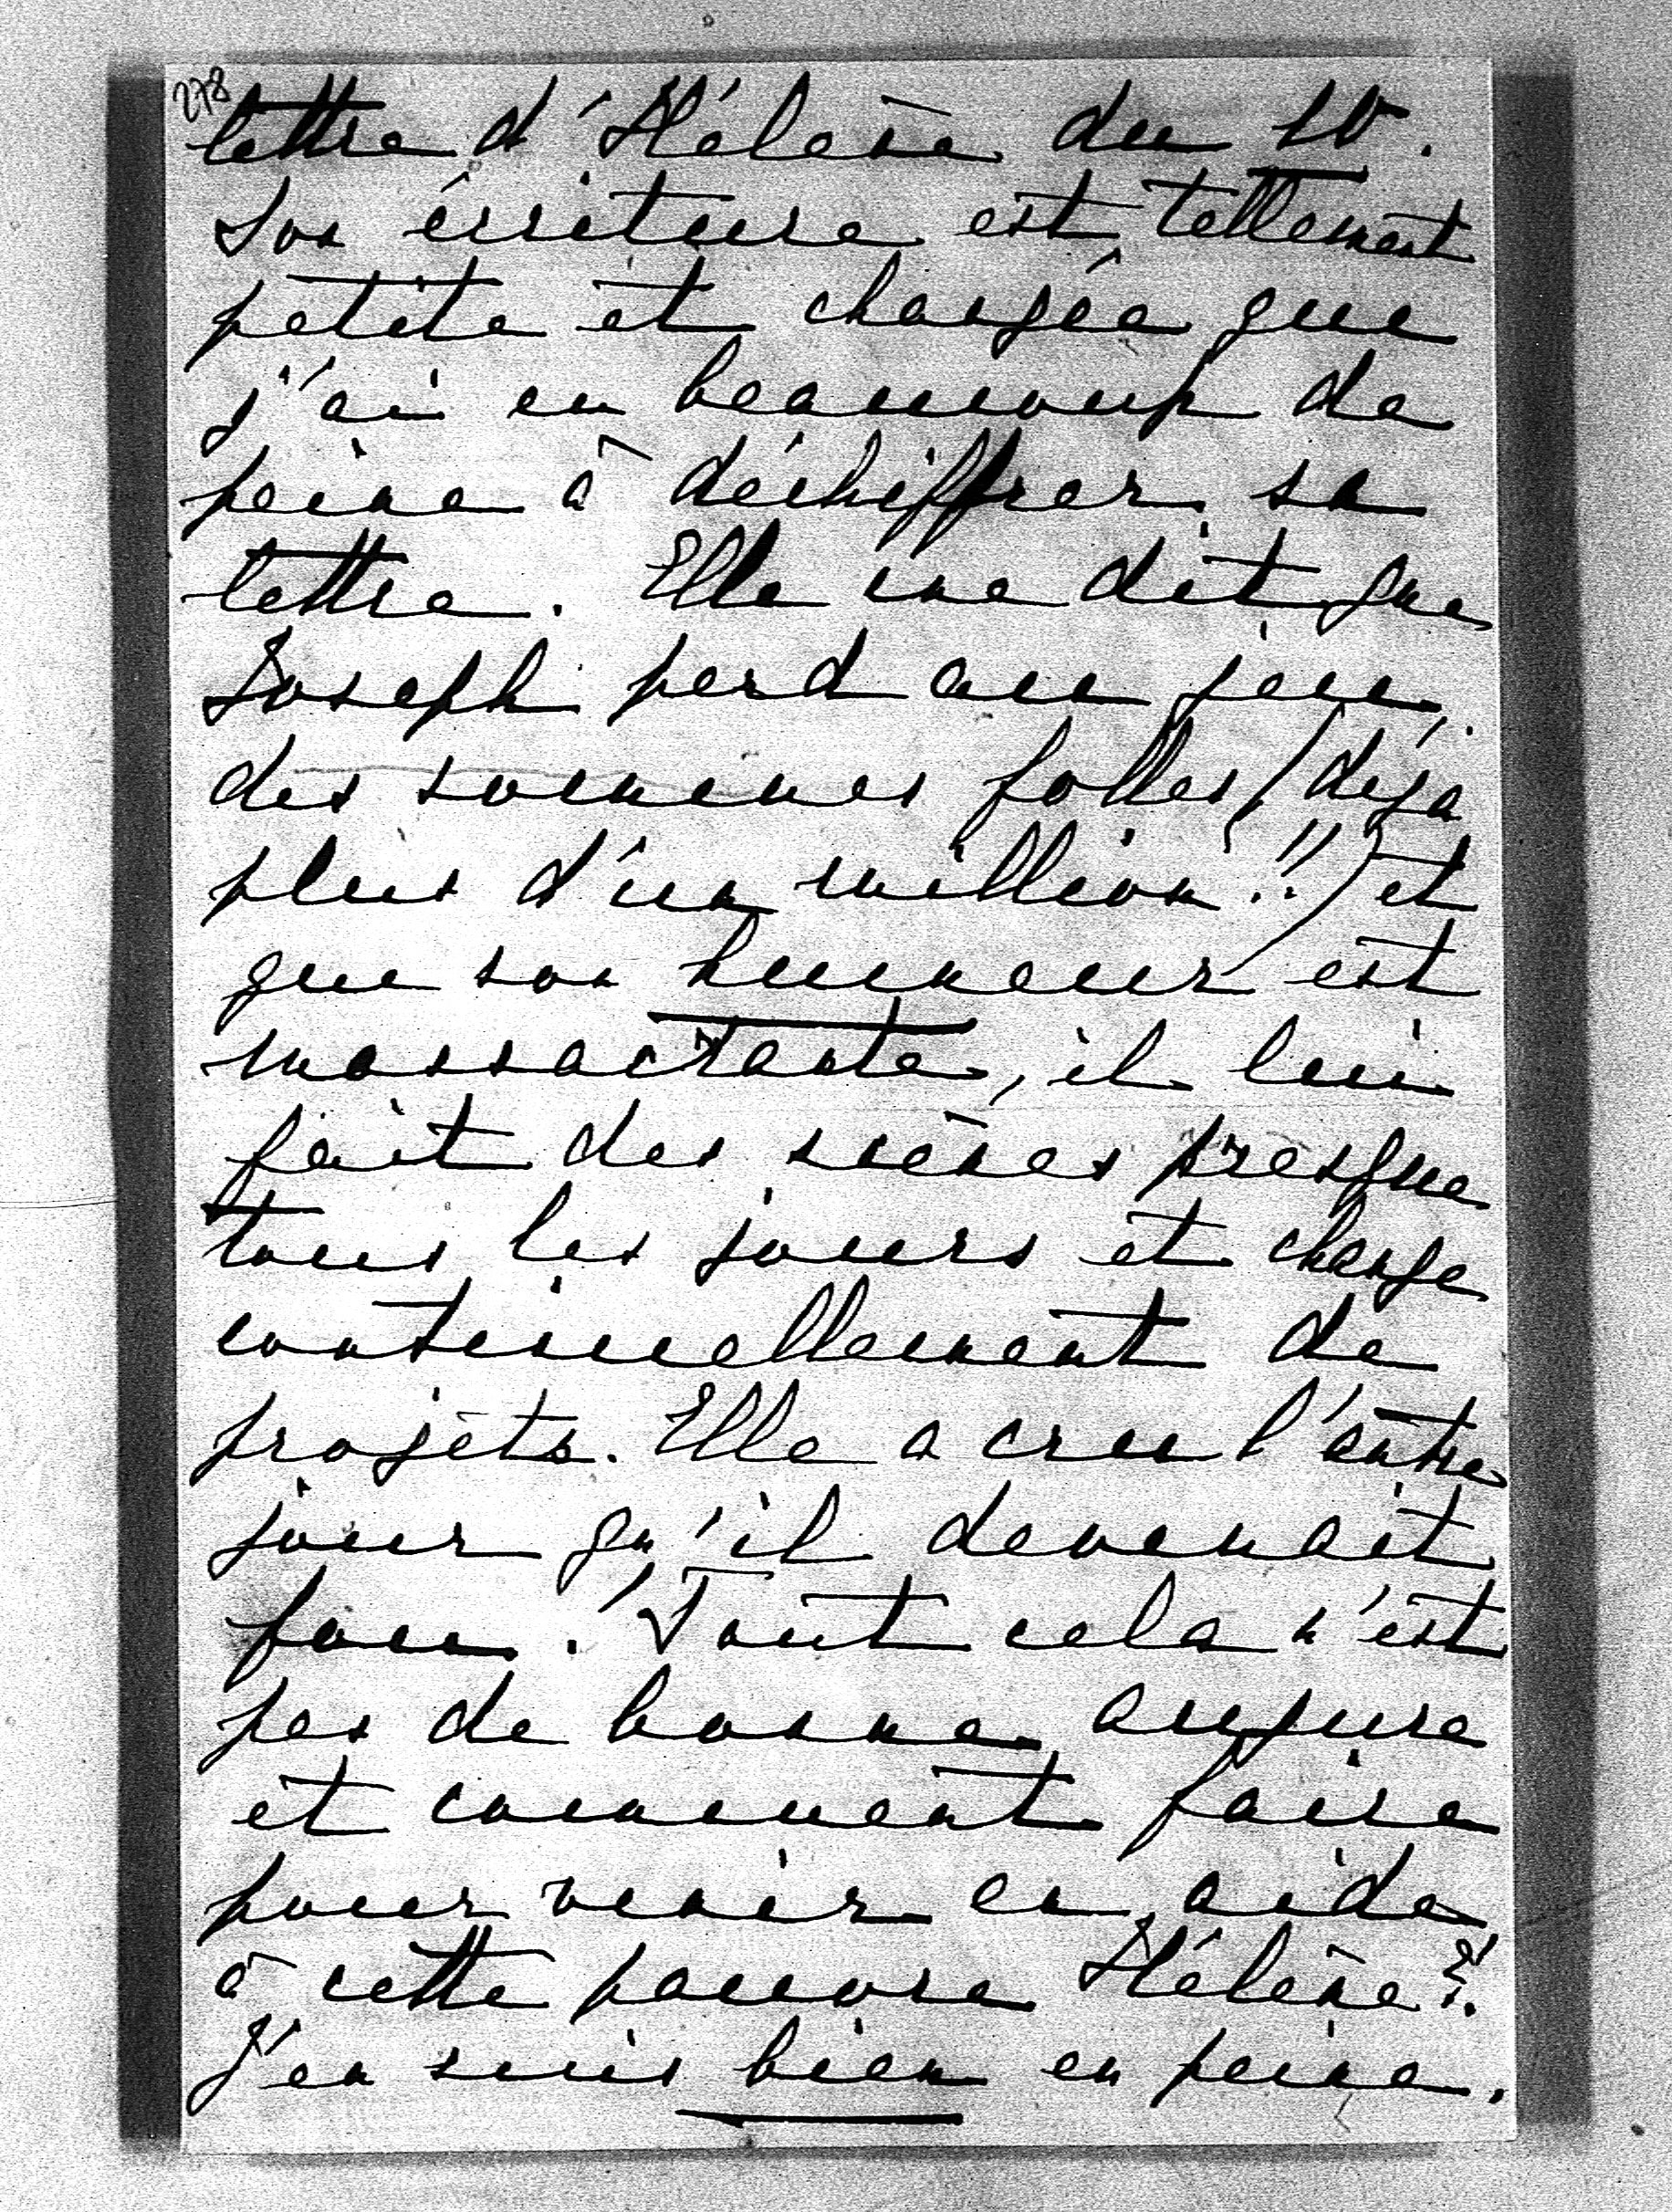 278
lettre d'Hélène du 10.
Son écriture est tellement
petite et changée que
j'ai eu beaucoup de
peine à déchiffrer sa
lettre. Elle me dit que
Joseph perd au jeu
des sommes folles (déjà
plus d'un million!!) et
que son humeur est
massacrante, il lui
fait des scènes presque
tous les jours et change
continuellement de
projets. Elle a cru l'autre
jour qu'il devenait
fou! Tout cela n'est
pas de bonne augure
et comment faire
pour venir en aide
à cette pauvre Hélène?!
J'en suis bien en peine.